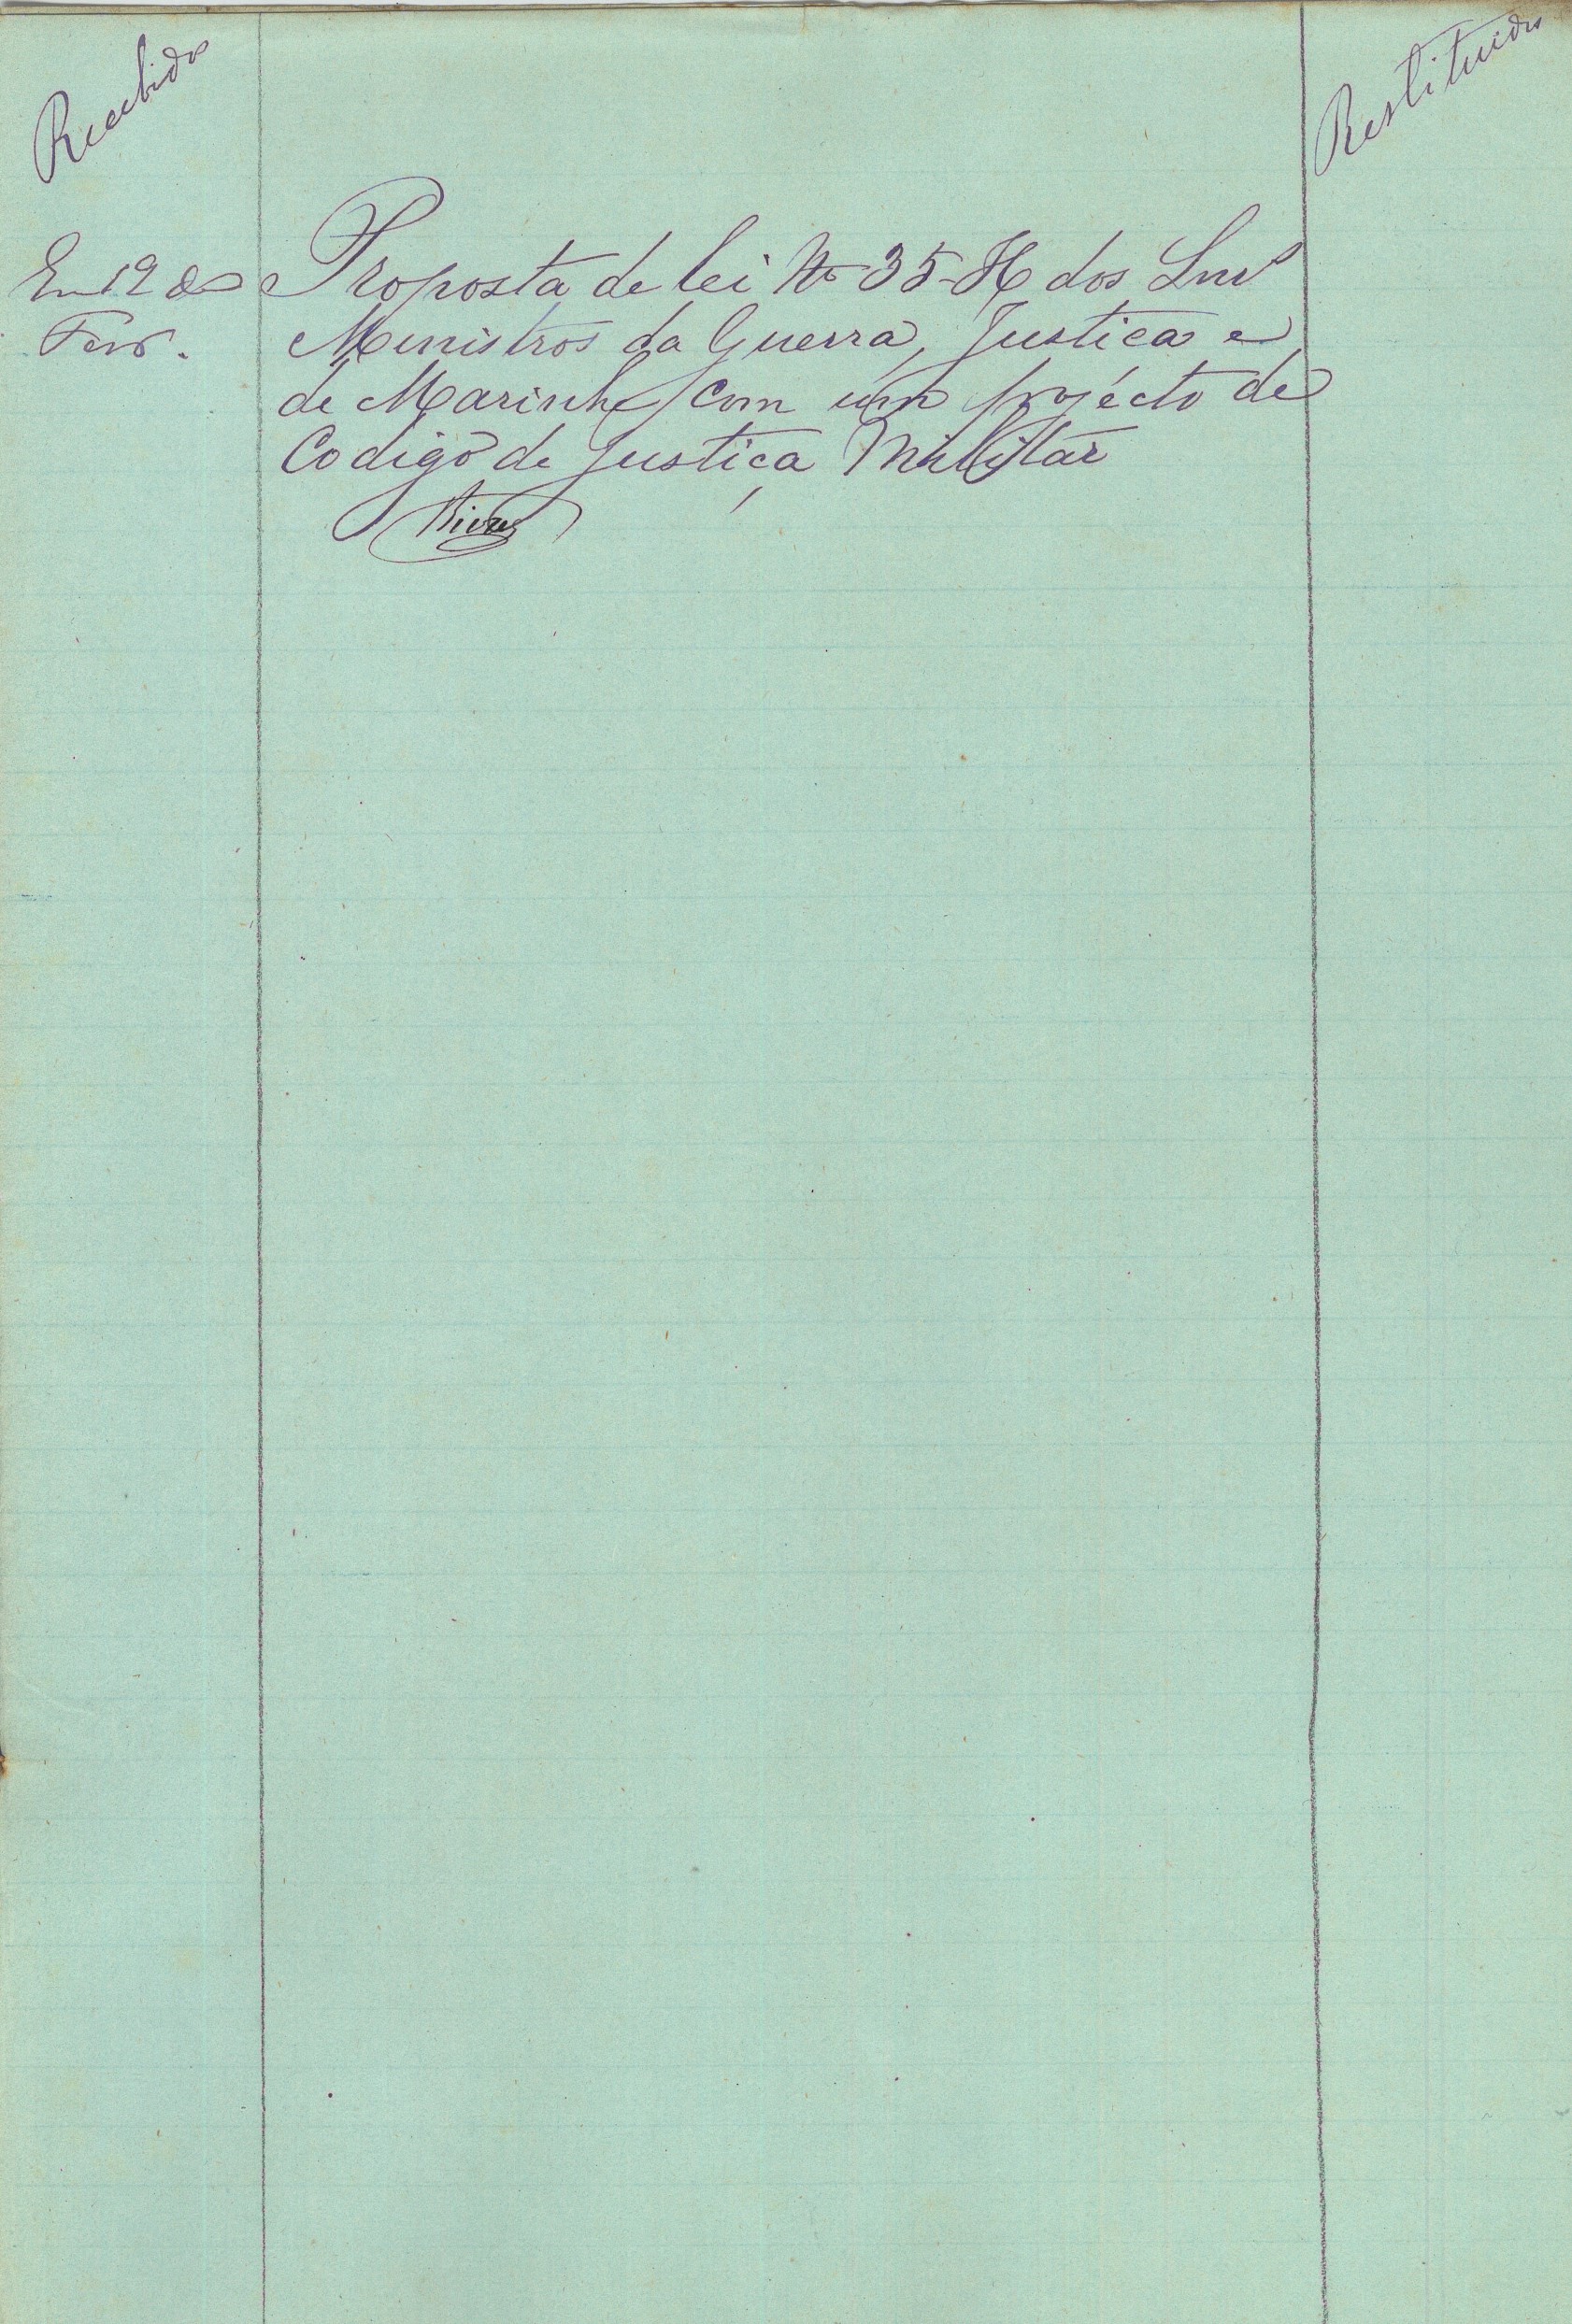 Recebidos
Restituidos
Em 19 de
Fevr.
Proposta de lei Nº 35-H dos Snrs
Ministros da Guerra, Justica e
de Marinha com um projécto de
Codigo de Justiça Militar